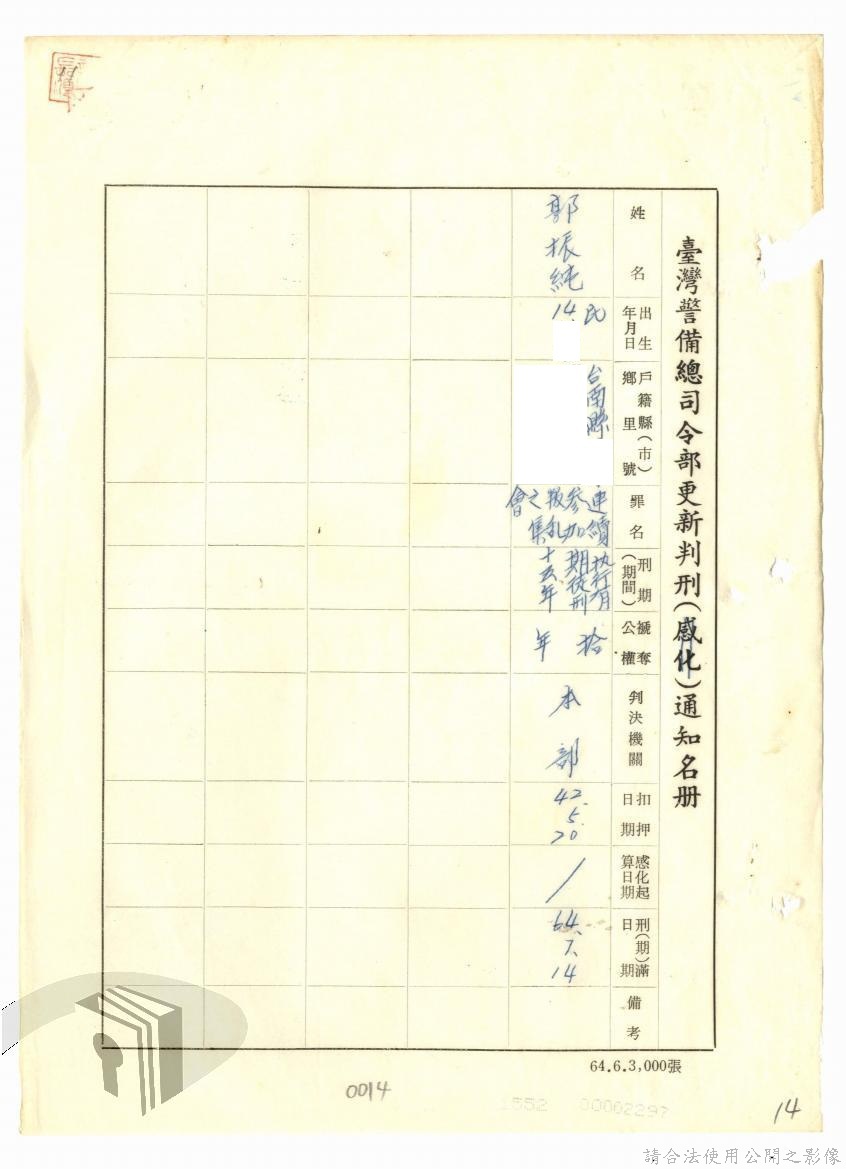 臺灣警備總司令部更新判刑(感化)通知名册
姓名
郭振純
出生年月日
民14.
戶籍縣(市)鄉里號
台南縣
罪名
連續參加叛乱之集會
刑期(期間)
执行有期徒刑十五年
褫奪公權
拾年
判決機關
本部
扣押日期
42.5.20
感化起算日期
/
刑(期)滿日期
64.7.14
備考
64.6.3,000張
0014
1552 00002297
14
請合法使用公開之影像